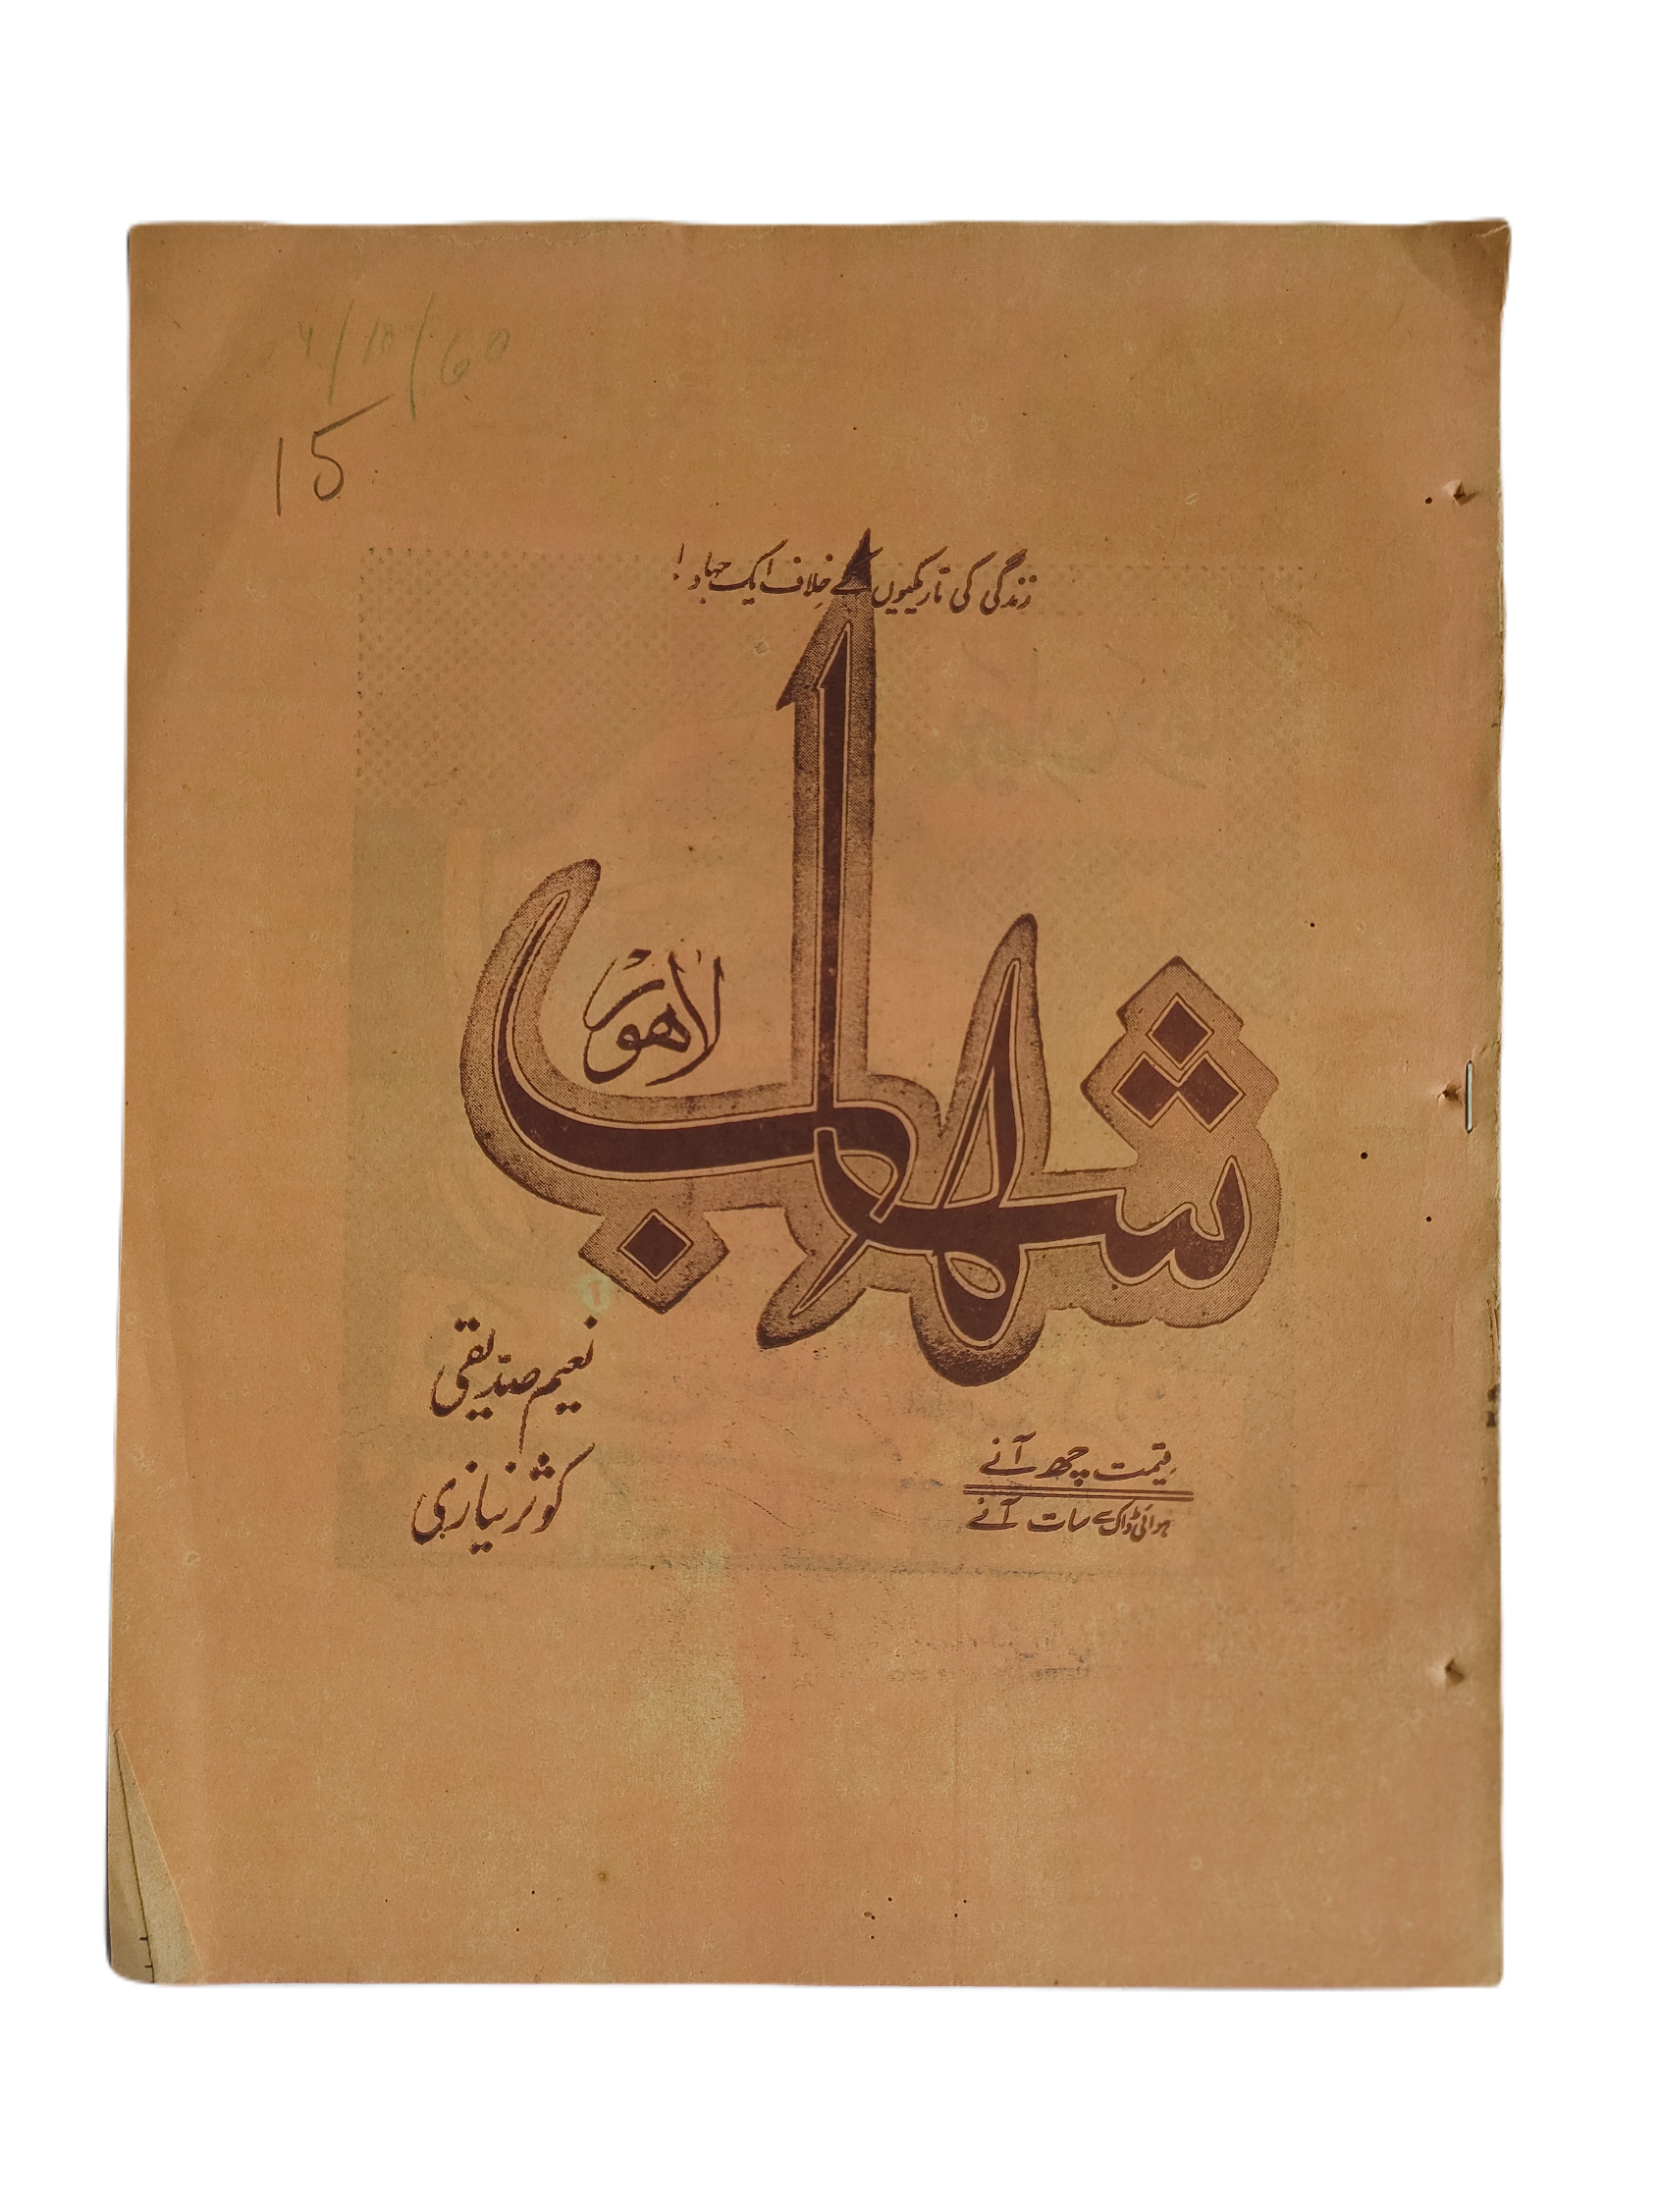 15
زندگی کی تاریکیوں کے خلاف ایک جہاد!
شہاب
لاہور
نعیم صدیقی
کوثر نیازی
قیمت چھ آنے
ہوائی ڈاک سے سات آنے